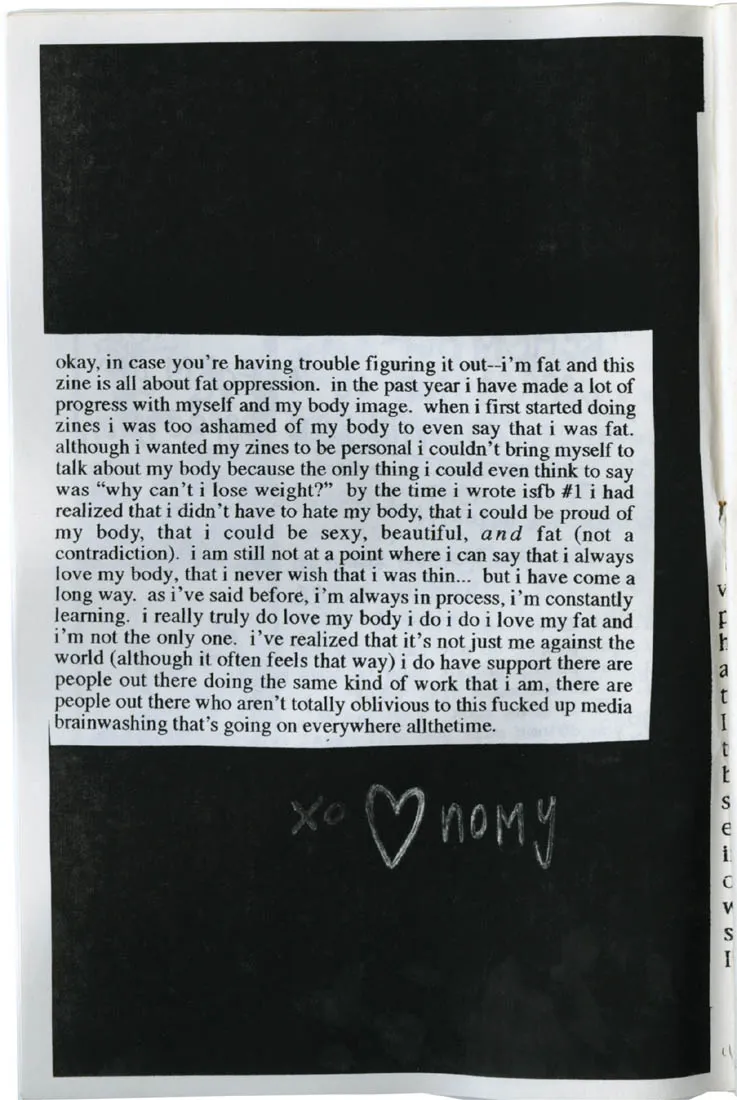 okay, in case you're having trouble figuring it out--i'm fat and this
zine is all about fat oppression.  in the past year i have made a lot of
progress with myself and my body image.  when i first started doing
zines i was too ashamed of my body to even say that i was fat.
although i wanted my zines to be personal i couldn't bring myself to
talk about my body because the only thing i could even think to say
was “why can't i lose weight?”  by the time i wrote isfb #1 i had
realized that i didn't have to hate my body, that i could be proud of
my body, that i could be sexy, beautiful, and fat (not a
contradiction).  i am still not at a point where i can say that i always
love my body, that i never wish that i was thin... but i have come a
long way.  as i've said before, i'm always in process, i'm constantly
learning.  i really truly do love my body i do i do i love my fat and
i'm not the only one.  i've realized that it's not just me against the
world (although it often feels that way) i do have support there are
people out there doing the same kind of work that i am, there are
people out there who aren't totally oblivious to this fucked up media
brainwashing that's going on everywhere allthetime.
xo ♡ nomy